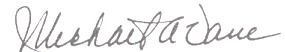 Michael A Vane